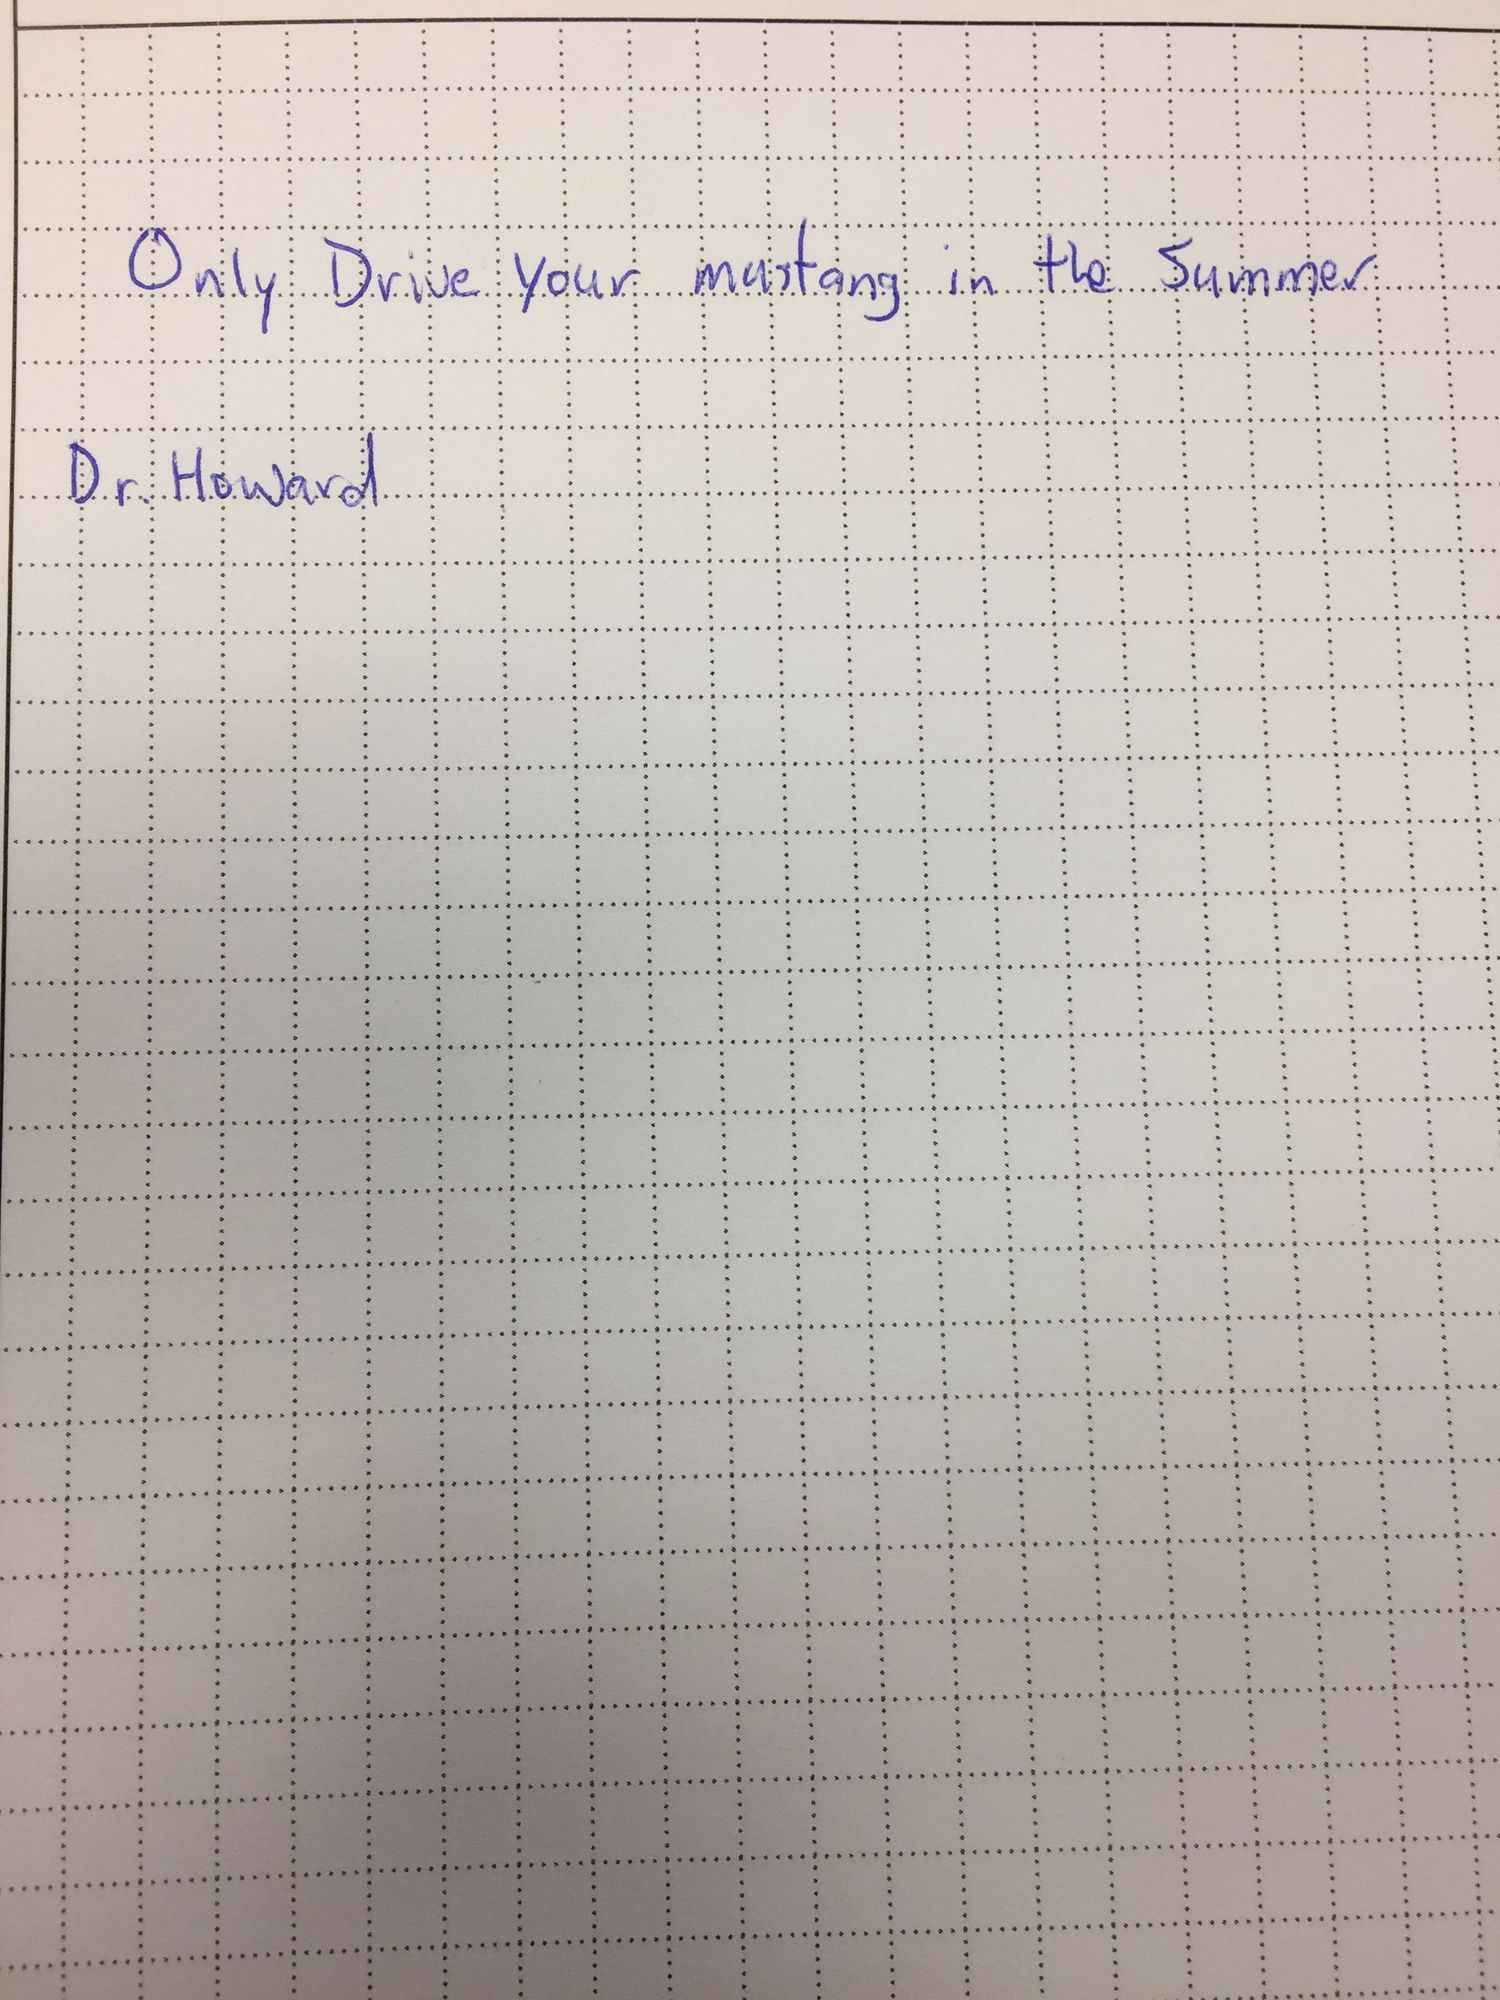 Only Drive Your mustang in the Summer
Dr. Howard